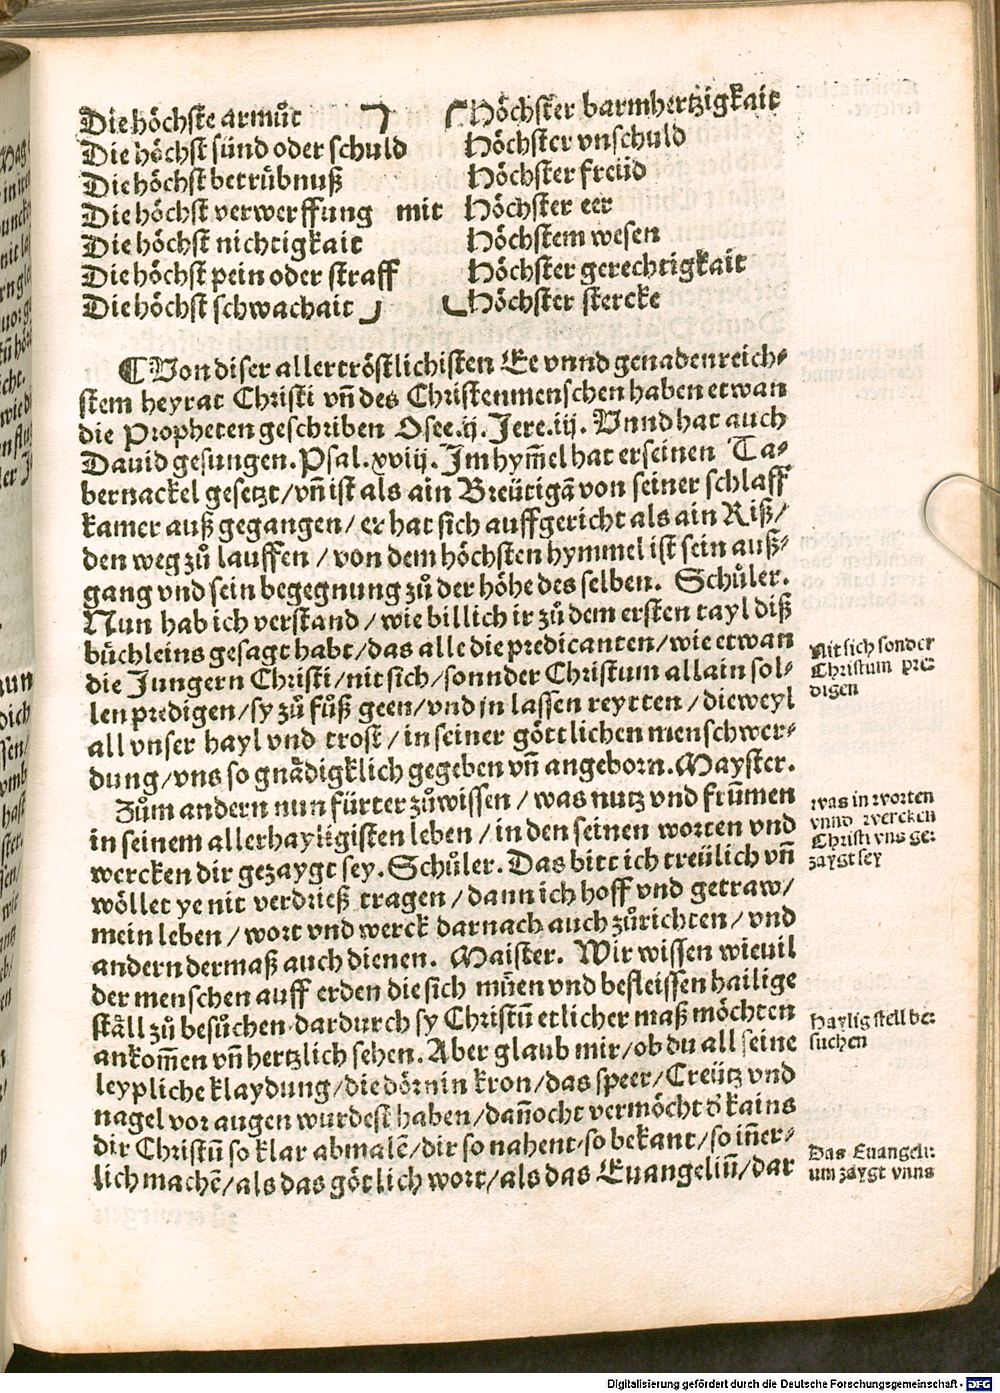 Die höchste armůt ⎤ ⎡Höchster barmhertzigkait
Die höchst sünd oder schuld Höchster vnschuld
Die höchst betrübnuß Höchster freüd
Die höchst verwerffung mit Höchster eer
Die höchst nichtigkait Höchstem wesen
Die höchst pein oder straff Höchster gerechtigkait
Die höchst schwachait ⎦ ⎣Höchster stercke
¶ Von diser allertröstlichisten Ee vnnd genadenreich⸗
stem heyrat Christi vn̄ des Christenmenschen haben etwan
die Propheten geschriben Osee.ij. Jere.iij. Vnnd hat auch
Dauid gesungen. Psal.xviij. Jm hym̄el hat er seinen Ta⸗
bernackel gesetzt/vn̄ ist als ain Breütigā von seiner schlaff
kamer auß gegangen/er hat sich auffgericht als ain Riß/
den weg zů lauffen/von dem höchsten hymmel ist sein auß⸗
gang vnd sein begegnung zů der höhe des selben. Schůler.
Nun hab ich verstand/wie billich ir zů dem ersten tayl diß
büchleins gesagt habt/das alle die predicanten/wie etwan
die Jungern Christi/nit sich/sonnder Christum allain sol⸗
len predigen/sy zů fůß geen/vnd in lassen reytten/dieweyl
all vnser hayl vnd trost/in seiner göttlichen menschwer⸗
dung/vns so gnådigklich gegeben vn̄ angeborn. Mayster.
Zům andern nun fürter zůwissen/was nutz vnd frūmen
in seinem allerhayligisten leben/in den seinen worten vnd
wercken dir gezaygt sey. Schůler. Das bitt ich treülich vn̄
wöllet ye nit verdrieß tragen/dann ich hoff vnd getraw/
mein leben/wort vnd werck darnach auch zůrichten/vnd
andern dermaß auch dienen. Maister. Wir wissen wieuil
der menschen auff erden die sich müen vnd befleissen hailige
ståll zů besůchen dardurch sy Christū etlicher maß möchten
ankom̄en vn̄ hertzlich sehen. Aber glaub mir/ob du all seine
leypliche klaydung/die dörnin kron/das speer/Creütz vnd
nagel vor augen wurdest haben/dan̄ocht vermöcht d̄ kains
dir Christū so klar abmalē/dir so nahent/so bekant/so in̄er⸗
lich machē/als das götlich wort/als das Euangeliū/dar
Nit sich sonder
Christum pre⸗
digen
was in worten
vnnd wercken
Christi vns ge⸗
zaygt sey
Haylig stell be⸗
suchen
Das Euangeli⸗
um zaygt vnns
Digitalisierung gefördert durch die Deutsche Forschungsgemeinschaft - DFG